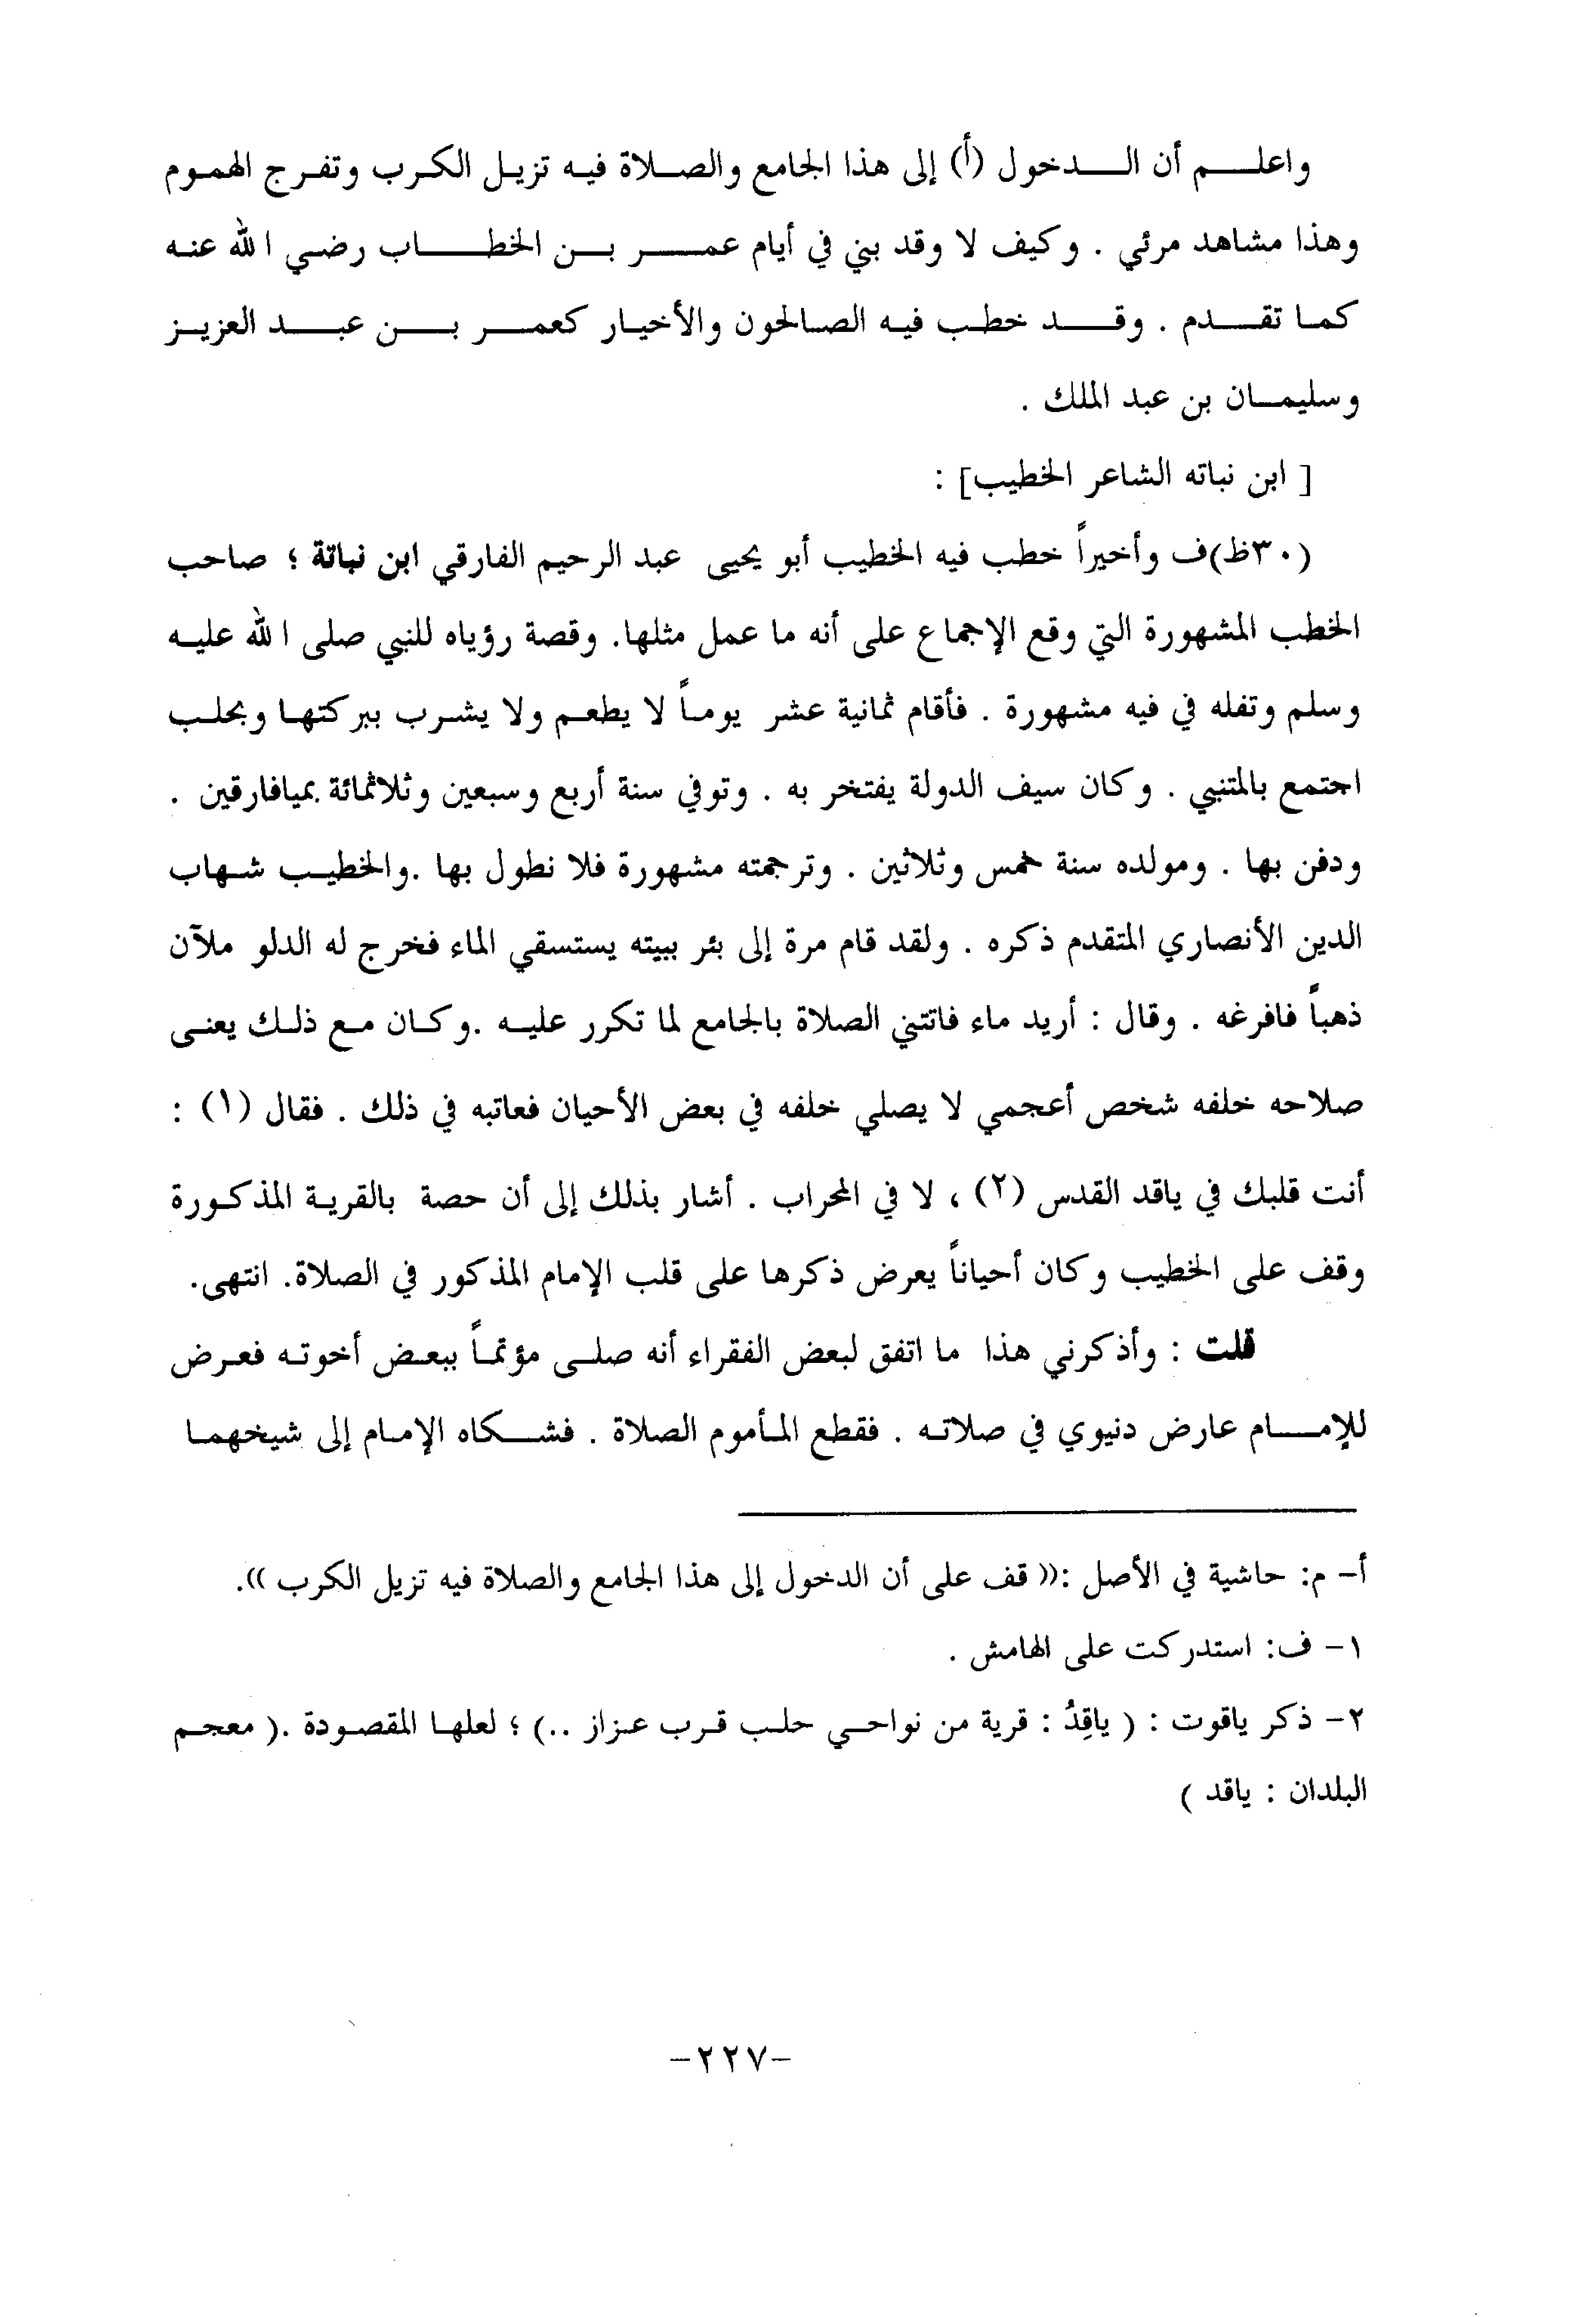 واعلم أن الدخول (أ) إلى هذا الجامع والصلاة فيه تزيل الكرب وتفرج الهموم
وهذا مشاهد مرئي . وكيف لا وقد بني في أيام عمر بن الخطاب رضي الله عنه
كما تقدم . وقد خطب فيه الصالحون والأخيار كعمر بن عبد العزيز
وسليمان بن عبد الملك .
[ ابن نباته الشاعر الخطيب] :
(٣٠ظ)ف وأخيراً خطب فيه الخطيب أبو يحيى عبد الرحيم الفارقي ابن نباتة ؛ صاحب
الخطب المشهورة التي وقع الإجماع على أنه ما عمل مثلها. وقصة رؤياه للنبي صلى الله عليه
وسلم وتفله في فيه مشهورة . فأقام ثمانية عشر يوماً لا يطعم ولا يشرب ببركتها وبحلب
اجتمع بالمتنبي . وكان سيف الدولة يفتخر به . وتوفي سنة أربع وسبعين وثلاثمائة بميافارقين .
ودفن بها . ومولده سنة خمس وثلاثين . وترجمته مشهورة فلا نطول بها .والخطيب شهاب
الدين الأنصاري المتقدم ذكره . ولقد قام مرة إلى بئر ببيته يستسقي الماء فخرج له الدلو ملآن
ذهباً فافرغه . وقال : أريد ماء فاتتني الصلاة بالجامع لما تكرر عليه .وكان مع ذلك يعنى
صلاحه خلفه شخص أعجمي لا يصلي خلفه في بعض الأحيان فعاتبه في ذلك . فقال (١) :
أنت قلبك في ياقد القدس (٢) ، لا في المحراب . أشار بذلك إلى أن حصة بالقرية المذكورة
وقف على الخطيب وكان أحياناً يعرض ذكرها على قلب الإمام المذكور في الصلاة. انتهى.
قلت : وأذكرني هذا ما اتفق لبعض الفقراء أنه صلى مؤتماً ببعض أخوته فعرض
للإمام عارض دنيوي في صلاته . فقطع المأموم الصلاة . فشكاه الإمام إلى شيخهما
أ- م: حاشية في الأصل :(( قف على أن الدخول إلى هذا الجامع والصلاة فيه تزيل الكرب )).
١- ف: استدركت على الهامش .
٢- ذكر ياقوت : ( ياقِدُ : قرية من نواحي حلب قرب عزاز ..) ؛ لعلها المقصودة .( معجم
البلدان : ياقد )
-٢٢٧-